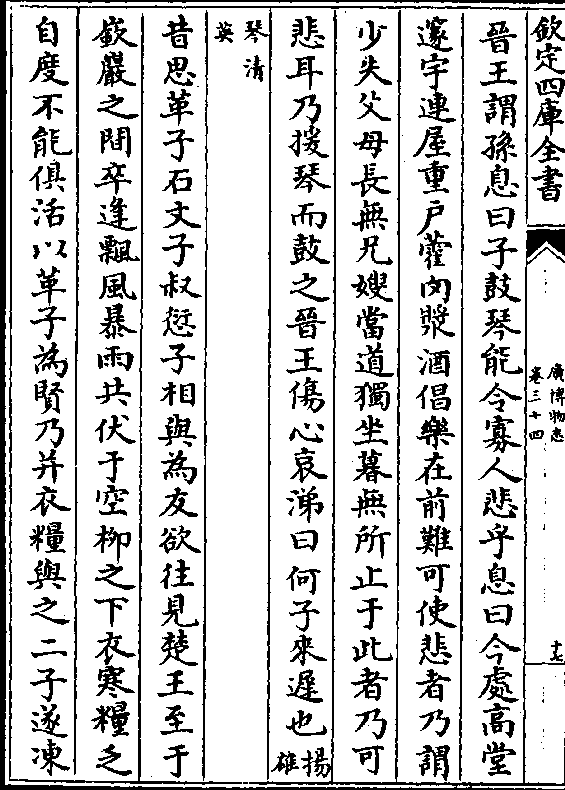 欽定四庫全書
廣博物志
卷三十四
十七
晉王謂孫息曰子鼓琴能令寡人悲乎息曰今處高堂
邃宇連屋重戶藿肉漿酒倡樂在前難可使悲者乃謂
少失父母長無兄嫂當道獨坐暮無所止于此者乃可
悲耳乃援琴而鼓之晉王傷心哀涕曰何子來遲也揚雄
琴清英
昔思革子石文子叔愆子相與為友欲往見楚王至于
嶔巖之間卒逢飄風暴雨共伏于空柳之下衣寒糧乏
自度不能俱活以革子為賢乃并衣糧與之二子遂凍